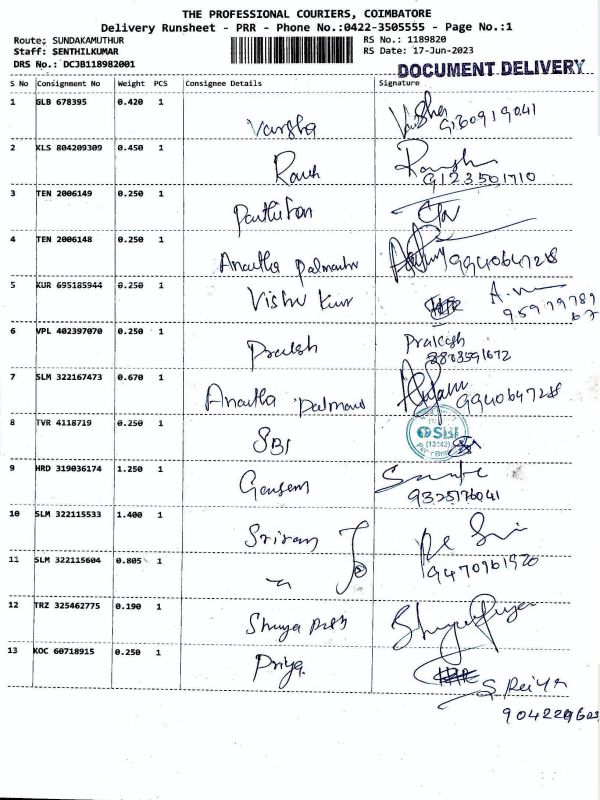 THE PROFESSIONAL COURIERS, COIMBATORE
Delivery Runsheet - PRR - Phone No.:0422-3505555 - Page No.:1
Route: SUNDAKAMUTHUR RS No.: 1189820
Staff: SENTHILKUMAR RS Date: 17-Jun-2023
DRS No.: DCJB118982001
DOCUMENT DELIVERY
S No Consignment No Weight PCS Consignee Details Signature
1 GLB 678395 0.420 1
Varsha
2 KLS 804209309 0.450 1
9123501710
3 TEN 2006149 0.250 1
4 TEN 2006148 0.250 1
Anantha 9940647288
5 KUR 695185944 0.250 1
Vishu Kumr
6 VPL 402397070 0.250 1 Prakash
7 SLM 322167473 0.670 1
Anantha 9940647288
8 TVR 4118719 0.250 1
SBI SBI
9 HRD 319036174 1.250 1
9325176041
10 SLM 322115533 1.400 1
Sriram
11 SLM 322115604 0.805 1
9470961920
12 TRZ 325462775 0.190 1
13 KOC 60718915 0.250 1
Priya
S. Priya